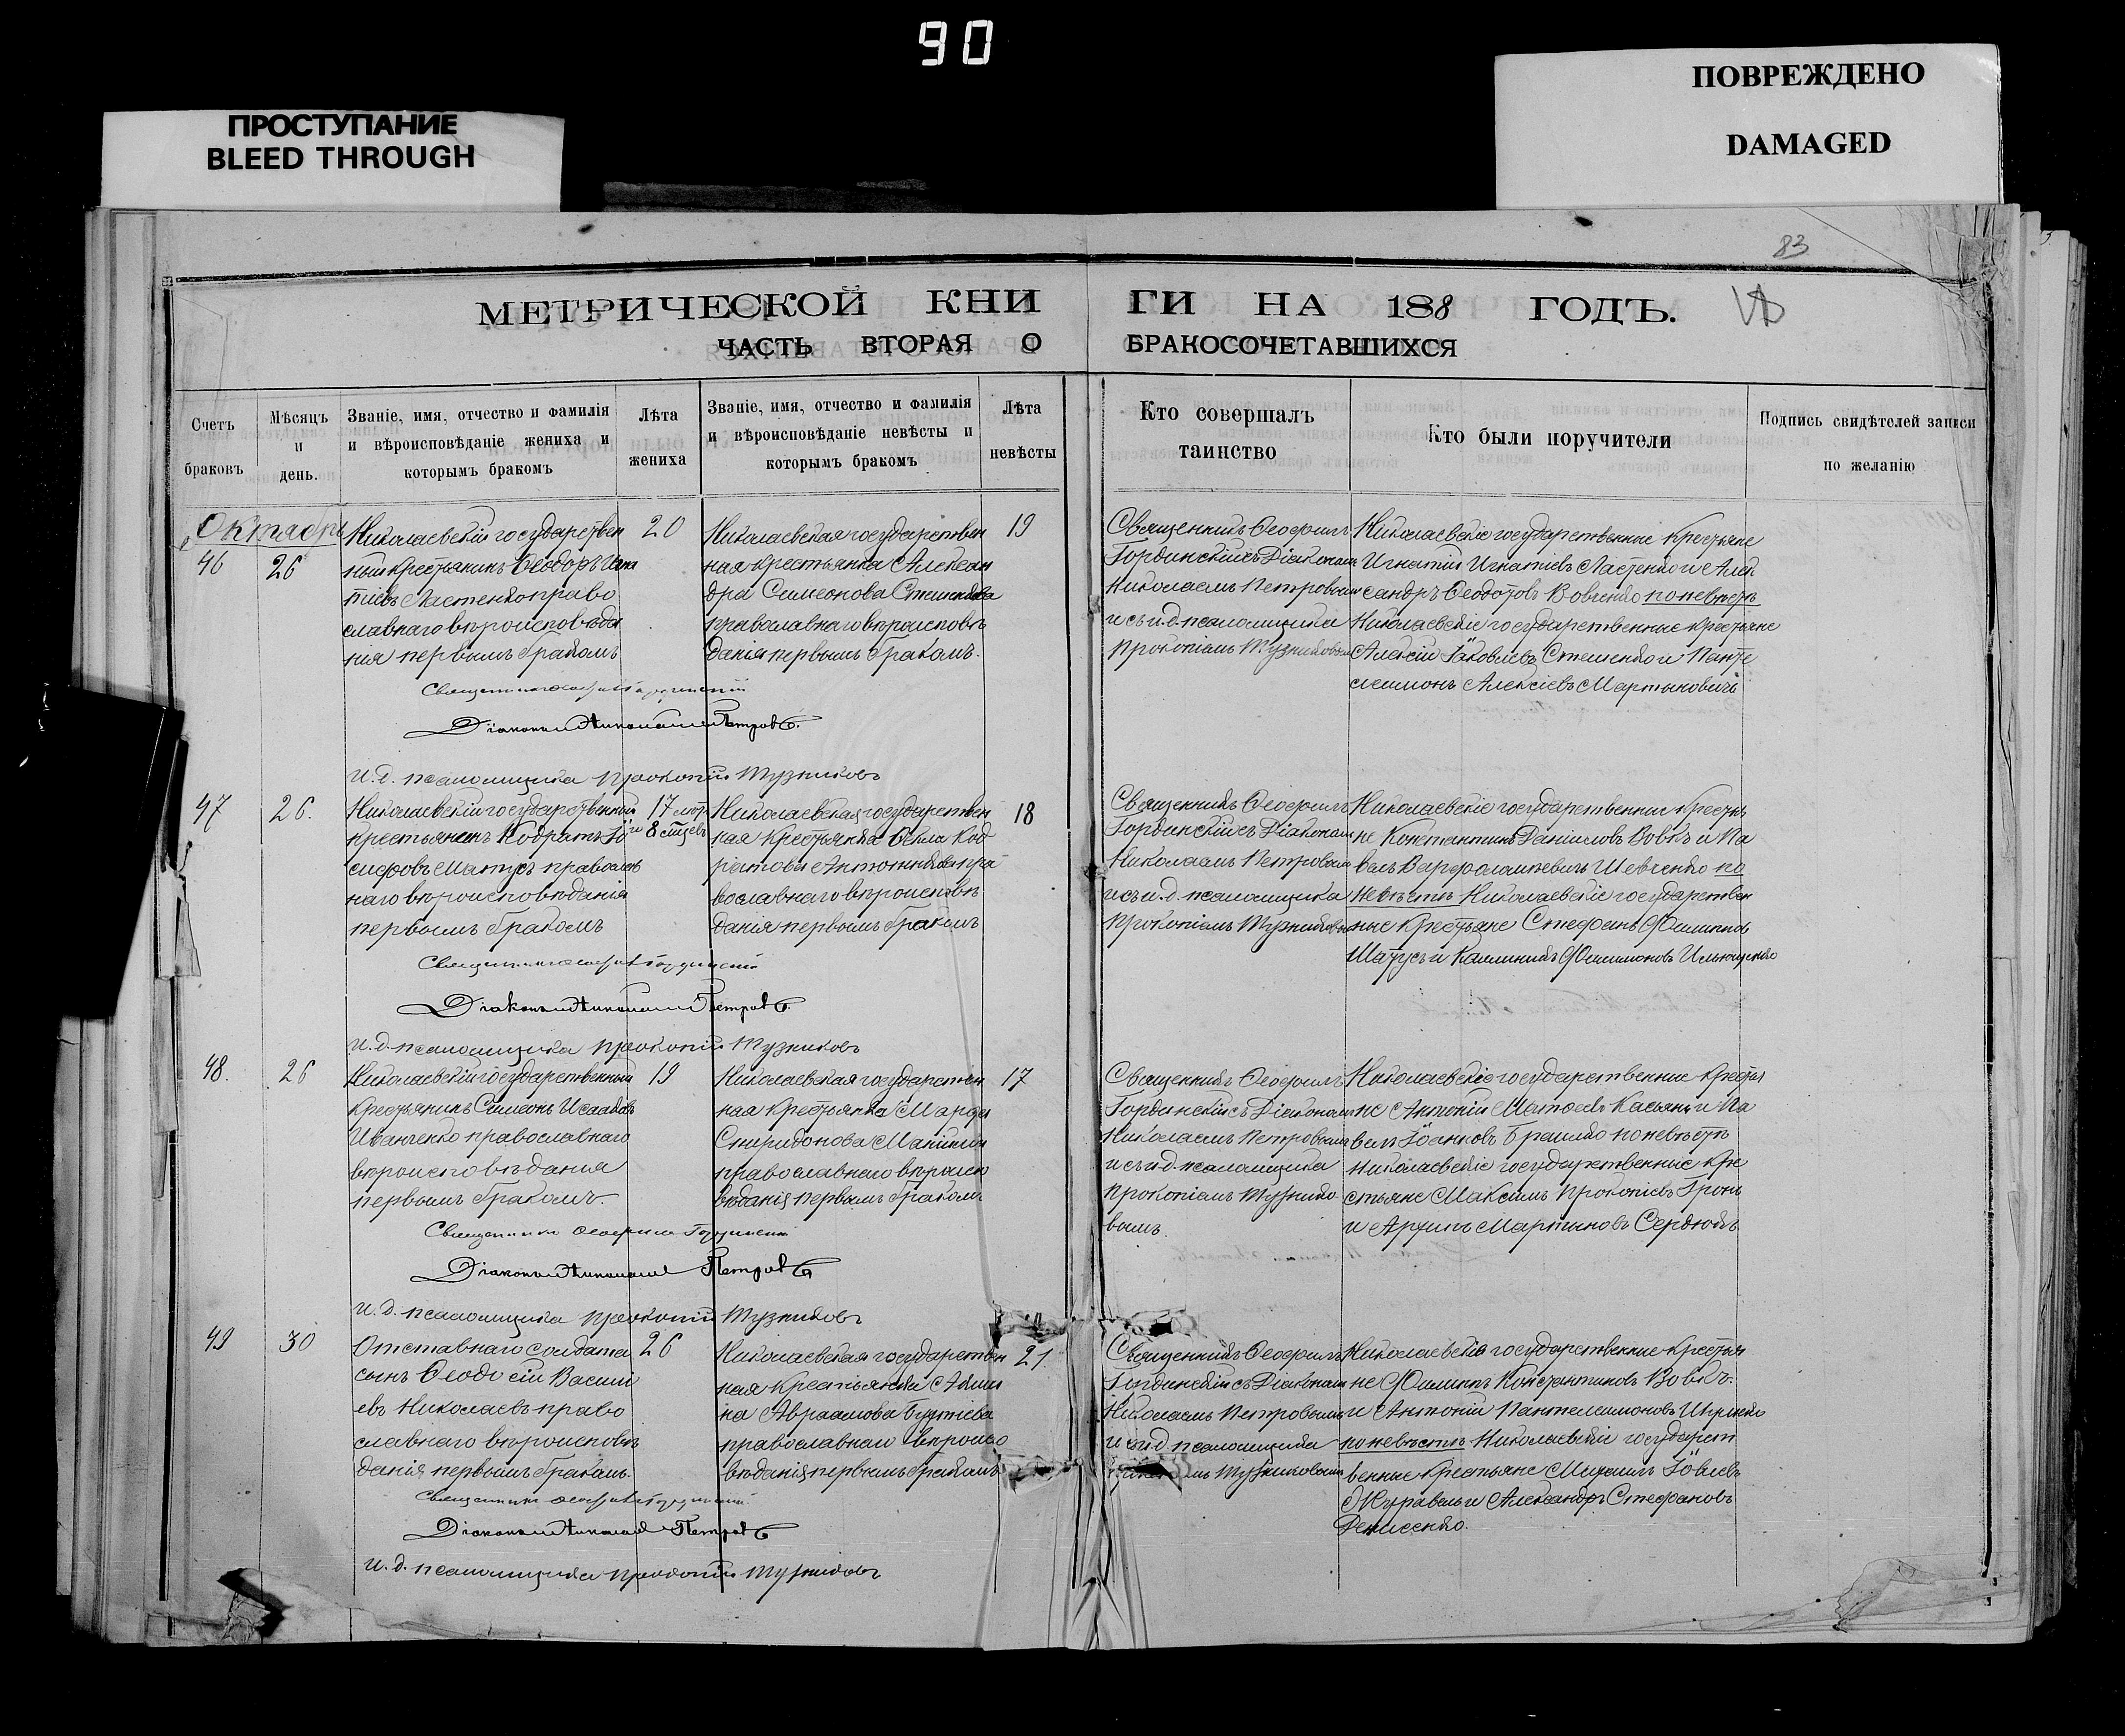 90
ПРОСТУПАНИЕ
BLEED THROUGH
ПОВРЕЖДЕНО
DAMAGED
83
МЕТРИЧЕСКОЙ КНИ ГИ НА 1888 ГОДЪ.
ЧАСТЬ ВТОРАЯ О БРАКОСОЧЕТАВШИХСЯ
Счетъ
браковъ
Мѣсяцъ
и
день.
Званіе, имя, отчество и фамилія
и вѣроисповѣданіе жениха и
которымъ бракомъ
Лѣта
жениха
Званіе, имя, отчество и фамилія
и вѣроисповѣданіе невѣсты и
которымъ бракомъ
Лѣта
невѣсты
Кто совершалъ
таинство
Кто были поручители
Подпись свидѣтелей записи
по желанію
Октябрь
46
26
Николаевскій государствен
ный крестьянинъ Ѳеодоръ Игна
тіевъ Ластенко право
славнаго вѣроисповѣда
нія первымъ бракомъ
20
Николаевская государствен
ная крестьянка Алексан
дра Симеонова Стешенкова
православнаго вѣроисповѣ
данія первымъ бракомъ.
19
Священникъ Ѳеофилъ
Гординскій съ Діакономъ
Николаемъ Петровымъ
и съ и.д. псаломщика
Прокопіемъ Тузниковымъ
Николаевскіе государственные крестьяне
Игнатій Игнатіевъ Ластенко и Алек
сандръ Ѳеодотовъ Вовченко по невѣстѣ
Николаевскіе государственные крестьяне
Алексій Іаковлевъ Стешенко и Панте
леимонъ Алексіевъ Мартыновичъ
Священникъ Ѳеофилъ Гординскій
Діаконъ Николай Петровъ.
И.д. псаломщика Прокопій Тузниковъ
47
26.
Николаевскій государственный
крестьянинъ Кодратъ Іо
сифовъ Шатусъ православ
наго вѣроисповѣданія
первымъ бракомъ
17 лѣтъ
и 8 мѣсяцевъ
Николаевская государствен
ная крестьянка Ѳекла Код
ратова Антоненкова пра
вославнаго вѣроисповѣ
данія первымъ бракомъ
18
Священникъ Ѳеофилъ
Гординскій съ Діакономъ
Николаемъ Петровымъ
и съ и.д. псаломщика
Прокопіемъ Тузниковымъ
Николаевскіе государственные крестья
не Константинъ Даніиловъ Вовкъ и Па
велъ Варфоломеевичъ Шевченко по
невѣстѣ Николаевскіе государствен
ные крестьяне Стефанъ Филипповъ
Шатусъ и Каллиникъ Филимоновъ Ильющенко
Священникъ Ѳеофилъ Гординскій
Діаконъ Николай Петровъ.
И.д. псаломщика Прокопій Тузниковъ
48.
26
Николаевскій государственный
крестьянинъ Симеонъ Исааковъ
Иванченко православнаго
вѣроисповѣданія
первымъ бракомъ
19
Николаевская государствен
ная крестьянка Марфа
Спиридонова
православнаго вѣроиспо
вѣданія первымъ бракомъ
17
Священникъ Ѳеофилъ
Гординскій съ Діакономъ
Николаемъ Петровымъ
и съ и.д. псаломщика
Прокопіемъ Тузнико
вымъ.
Николаевскіе государственные крестья
не Антоній Матѳеевъ Касьянъ и Па
велъ Іоанновъ Браилко по невѣстѣ
Николаевскіе государственные кре
стьяне Максимъ Прокопіевъ
и Мартыновъ Сердюкъ
Священникъ Ѳеофилъ Гординскій
Діаконъ Николай Петровъ
И.д. псаломщика Прокопій Тузниковъ
49
30
Отставнаго солдата
сынъ Ѳеодосій Васил
евъ Николаевъ право
славнаго вѣроисповѣ
данія первымъ бракомъ.
26
Николаевская государствен
ная крестьянка Акили
на Авраамова
православнаго вѣроиспо
вѣданія первымъ бракомъ
21.
Священникъ Ѳеофилъ
Гординскій съ Діакономъ
Николаемъ Петровымъ
и съ и.д. псаломщика
Тузниковымъ
Николаевскіе государственные крестья
не Филиппъ Константиновъ Вовкъ
и Антоній Пантелеимоновъ
по невѣстѣ Николаевскіе государст
венные крестьяне Михаилъ Іовлевъ
Журавель и Александръ Стефановъ
Денисенко.
Священникъ Ѳеофилъ Гординскій
Діаконъ Николай Петровъ
И.д. псаломщика Прокопій Тузниковъ